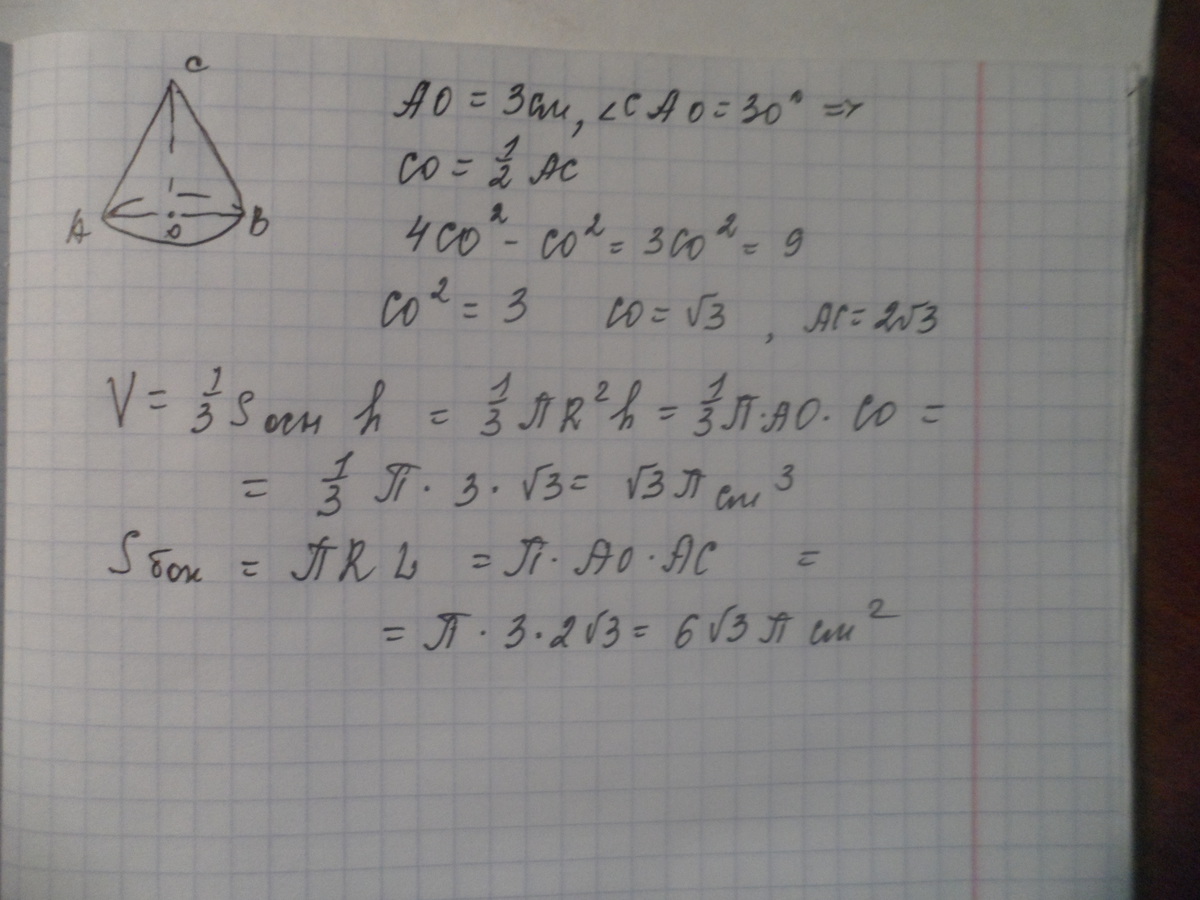 C
A O B
AO = 3см, ∠CAO = 30° =>
CO = 1/2 AC
4CO² - CO² = 3CO² = 9
CO² = 3 CO = √3 , AC = 2√3
V = 1/3 S осн h = 1/3 ПR²h = 1/3 П·AO·CO =
= 1/3 П· 3·√3 = √3 П см³
S бок = ПRL = П·AO·AC =
= П·3·2√3 = 6√3 П см²